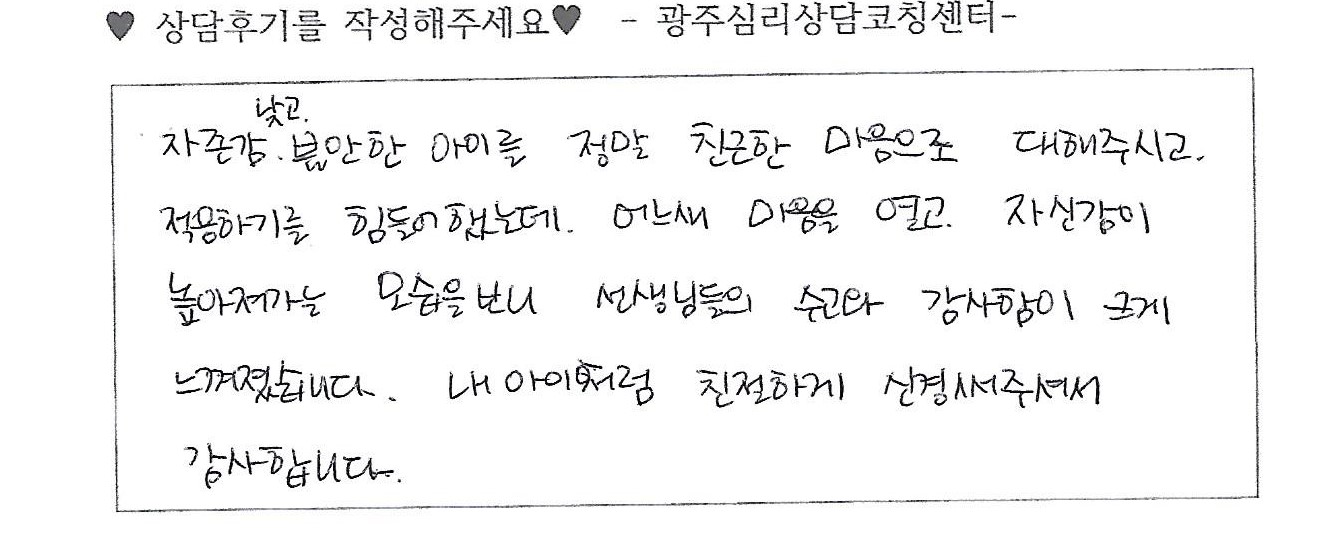 ♥ 상담후기를 작성해주세요♥ - 광주심리상담코칭센터-
낮고.
자존감. 불안한 아이를 정말 친근한 마음으로 대해주시고.
적응하기를 힘들어했는데. 어느새 마음을 열고. 자신감이
높아져가는 모습을 보니 선생님들의 수고와 감사함이 크게
느껴졌습니다. 내 아이처럼 친절하게 신경써주셔서
감사합니다.